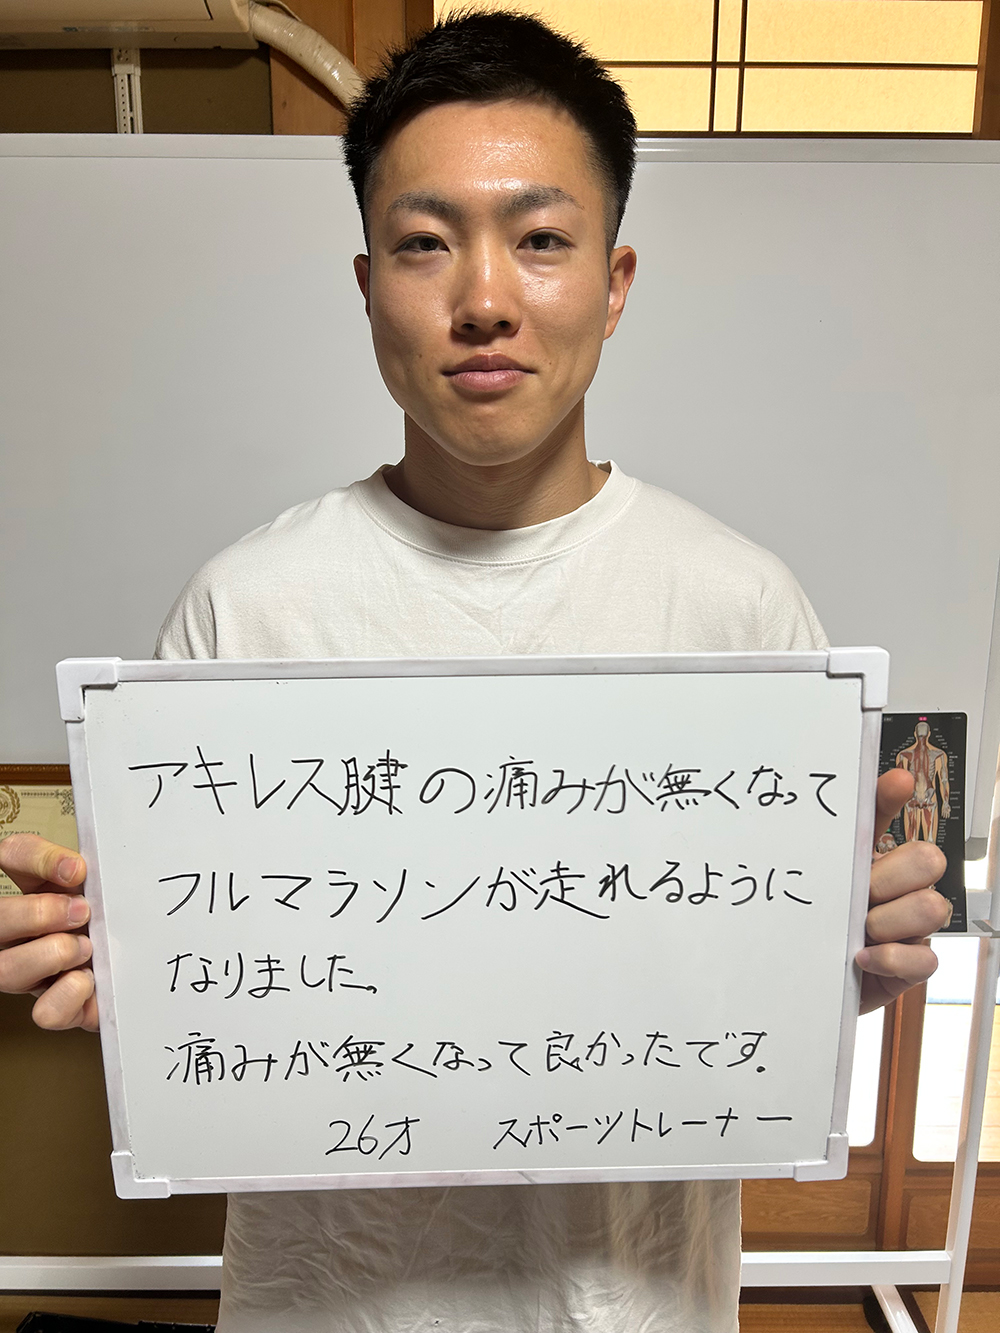 アキレス腱の痛みが無くなって
フルマラソンが走れるように
なりました。
痛みが無くなって良かったです。
26才 スポーツトレーナー